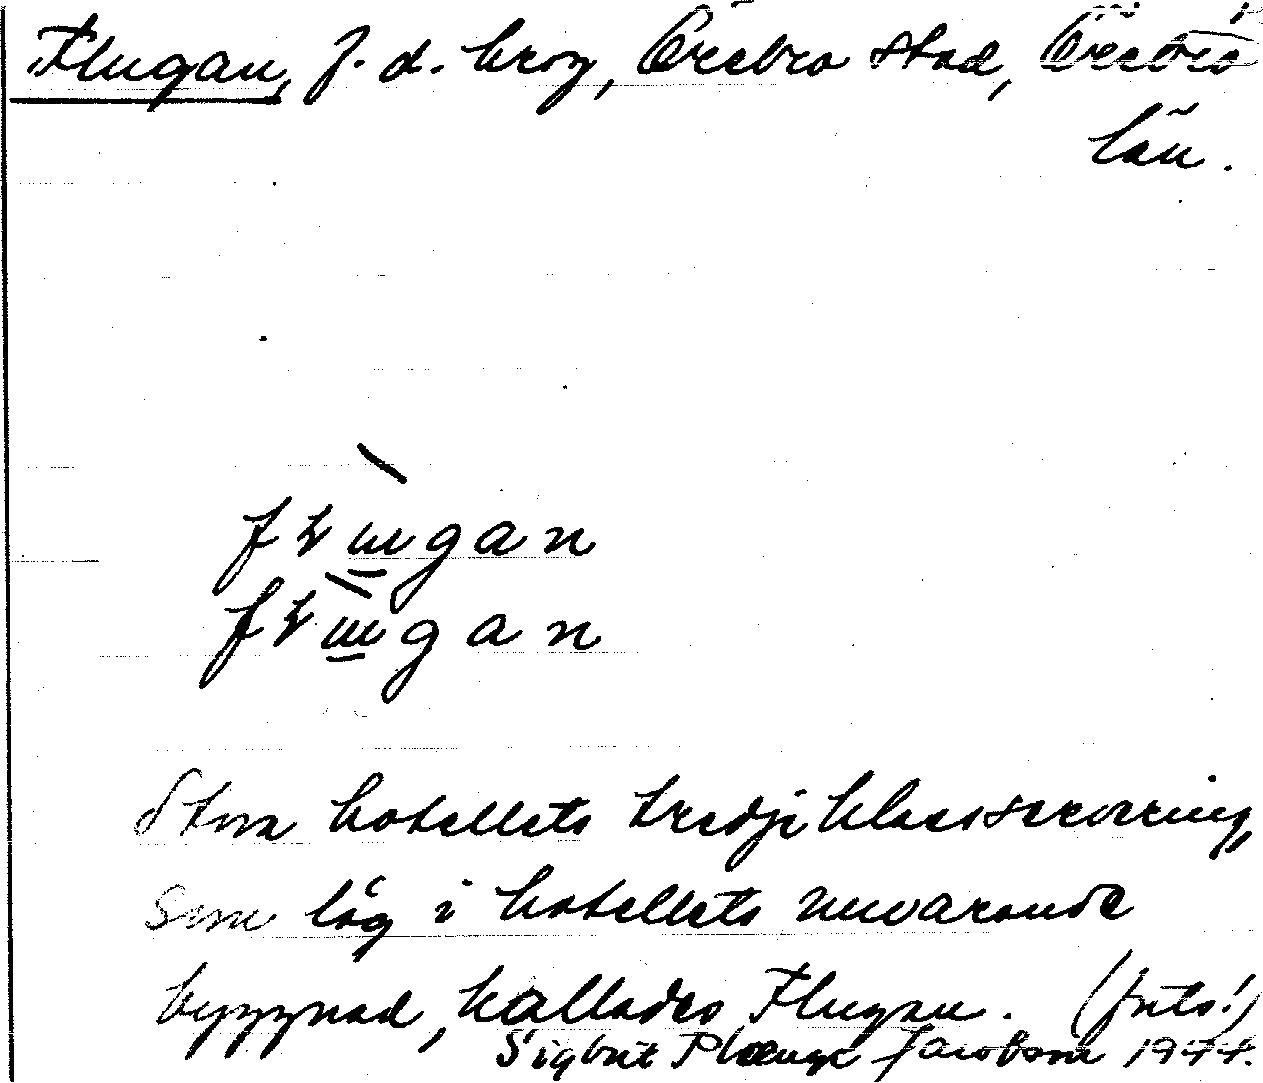 Flugan, f. d. krog, Örebro stad, Örebro
län.
flugan
flugan
Stora hotellets tredjeklassservering,
som låg i hotellets nuvarande
byggnad, kallades Flugan. (foto!)
Sigbrit Plænge Jacobson 1944.